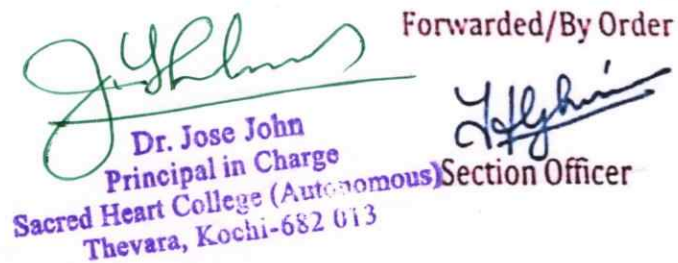 Forwarded/By Order
Dr. Jose John
Principal in Charge
Sacred Heart College (Autonomous)
Thevara, Kochi-682 013
Section Officer